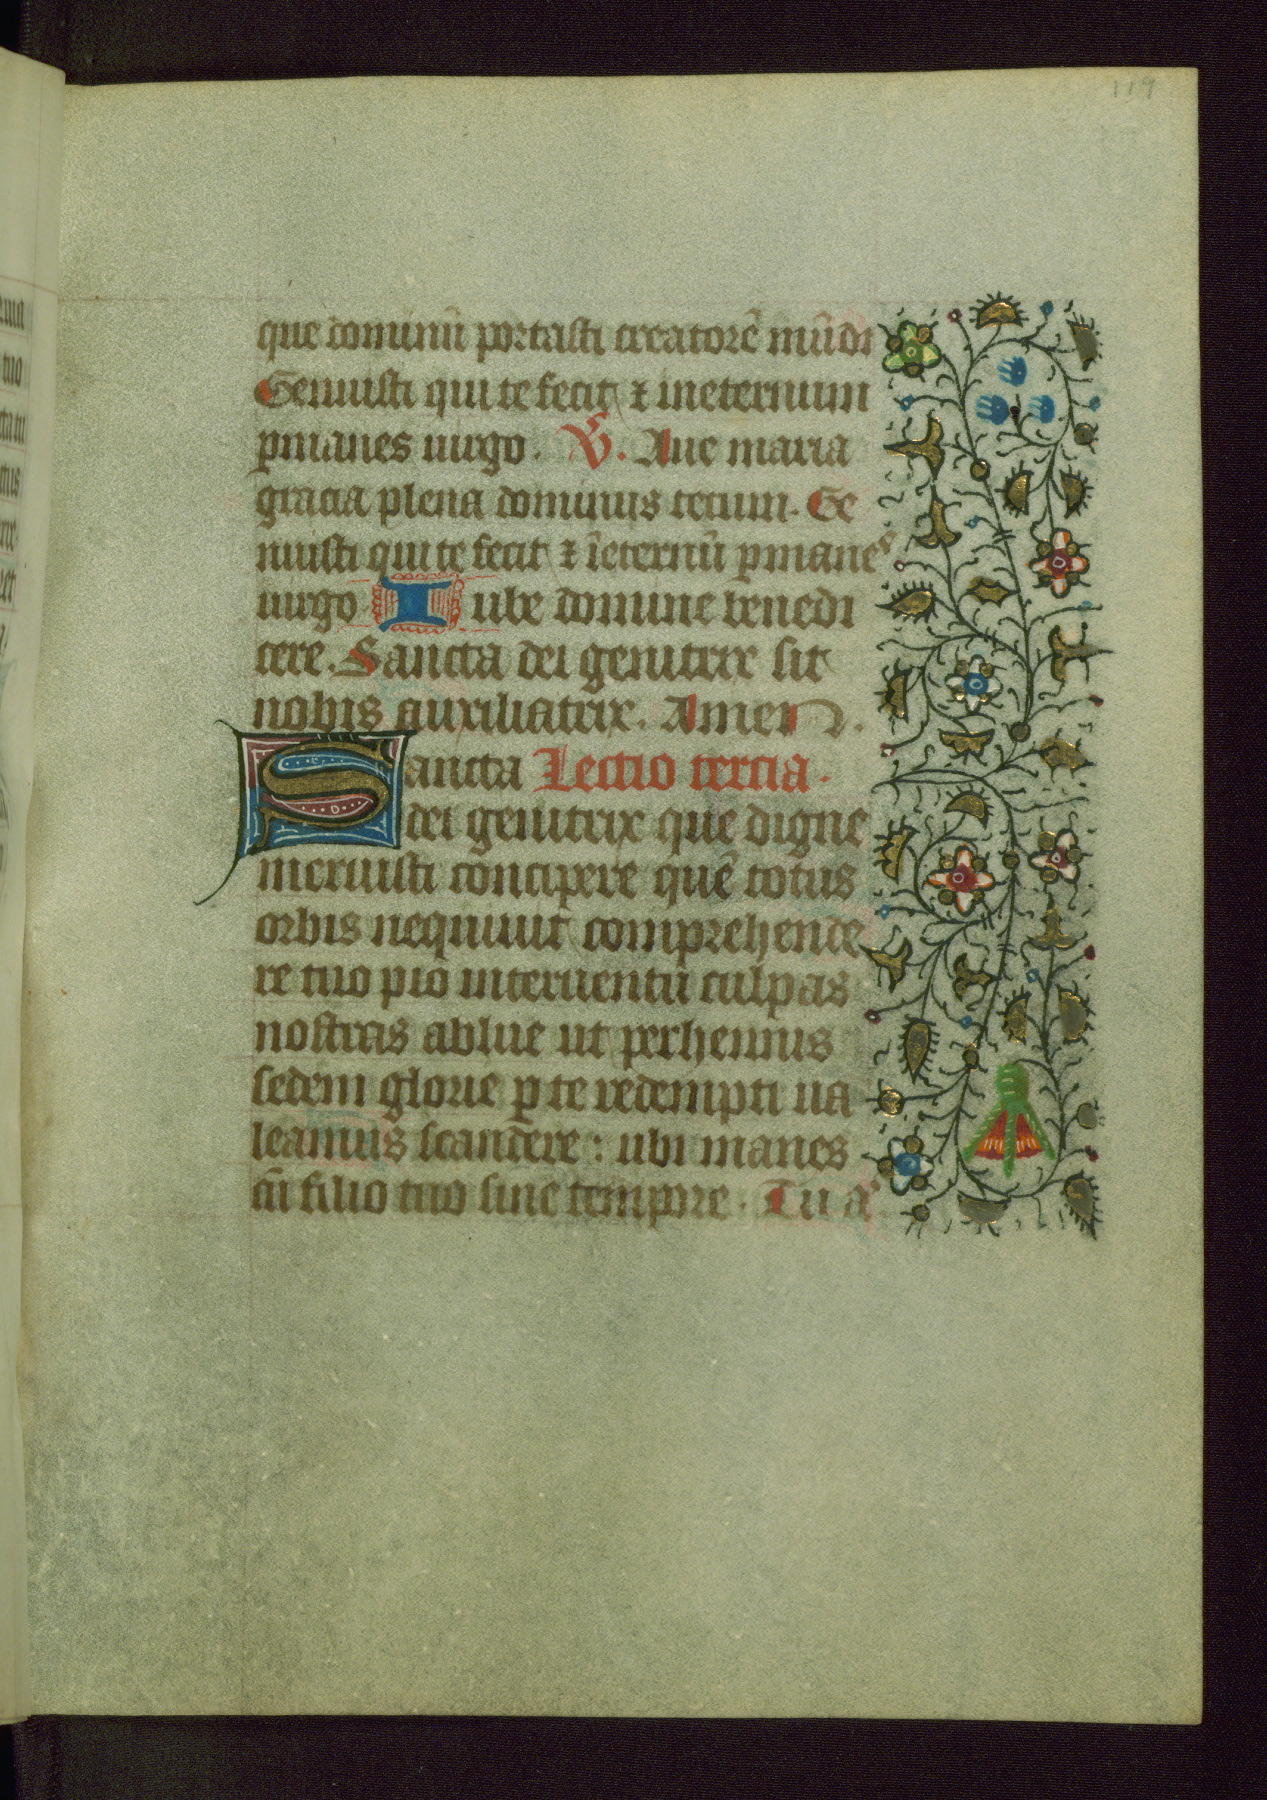 119
que dominū portasti creatorē mūdi
Genuisti qui te fecit ⁊ ineternum
ꝑmanes uirgo. V̓. Aue maria
gracia plena dominus tecum. Ge
nuisti qui te fecit ⁊ īeternū ꝑmanes
uirgo Iube domine benedi
cere. Sancta dei genitrix sit
nobis auxiliatrix. Amen.
Sancta Lectio tercia.
dei genitrix que digne
meruisti concipere quē totus
orbis nequiuit comprehende
re tuo pio interuentu culpas
nostras ablue ut perhennis
sedem glorie ꝑ te redempti ua
leamus scandere : ubi manes
cū filio tuo sine tempore. Tu a